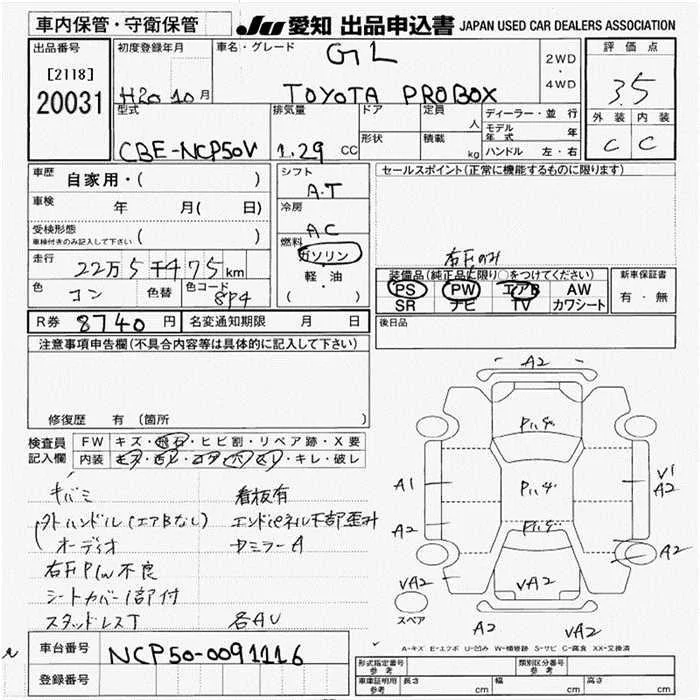 車内保管・守衛保管
JU 愛知 出品申込書 JAPAN USED CAR DEALERS ASSOCIATION
出品番号
[2118]
20031
初度登録年月
H20 10月
車名・グレード
GL
TOYOTA PROBOX
2WD
・
4WD
評価点
3.5
外装 内装
C C
型式
CBE-NCP50V
排気量
1.29 CC
ドア
形状
定員
人
積載
kg
ディーラー・並行
モデル年式 年
ハンドル 左・右
車歴 自家用・( )
車検 年 月( 日)
受検形態
車検付きのみ記入して下さい ( )
走行 22万5千475km
色 コン 色替 色コード 8P4
R券 8740円 名変通知期限 月 日
シフト
A.T
冷房
AC
燃料
ガソリン
軽・油
( )
セールスポイント(正常に機能するものに限ります)
右Fのみ
装備品(純正品に限り〇をつけてください)
PS PW エアB AW
SR ナビ TV カワシート
新車保証書
有・無
後日品
注意事項申告欄(不具合内容等は具体的に記入して下さい)
修復歴 有(箇所 )
検査員記入欄
FW キズ・飛石・ヒビ割・リペア跡・X要
内装 キズ・ヨレ・コゲ・ホツレ・キレ・破レ
キバミ 看板有
外ハンドル(エアBなし) エンドパネル下部歪み
オーディオ ミラーA
右F P/W 不良
シートカバー1部付
スタッドレスT 各AU
A2
A1
A2
VA2
V1
A2
A2
VA2
スペア
A2
VA2
A-キズ E-エクボ U-凹み W-補修跡 S-サビ C-腐食 XX-交換済
車台番号 NCP50-0091116
登録番号
形式指定番号 参考
類別区分番号 参考
車庫証明用 参考 長さ cm 幅 cm 高さ cm